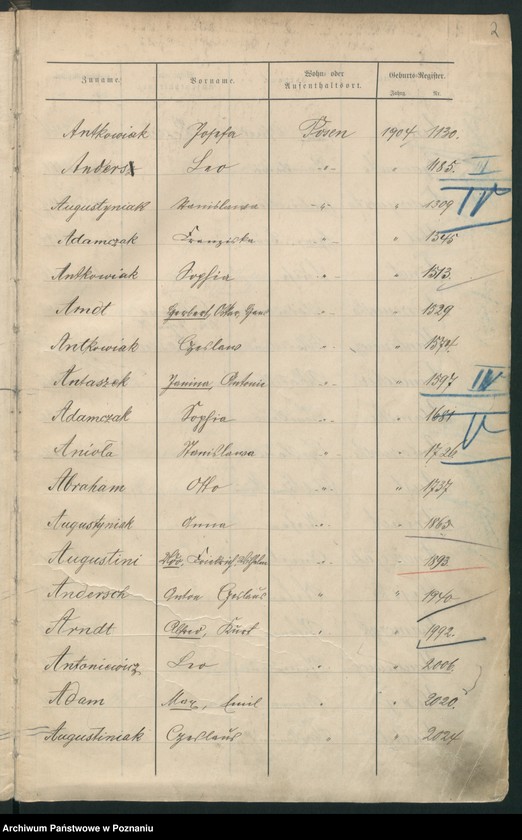 2
Zuname. Vorname. Wohn- oder Aufenthaltsort. Geburts-Register.
Jahrg. Nr.
Antkowiak Josefa Posen 1904 1130.
Anders Leo " " 1185. III
Augustyniak Stanislawa " " 1309 IV
Adamczak Franziska " "
Antkowiak Sophia " " 1513
Arndt Herbert, Oskar, Hans " " 1529
Antkowiak Czeslaw " " 1574.
Antaszek Janina, Antonie " " 1597 IV
Adamczak Sophia " " 1681
Anioła Stanislawa " " 1726
Abraham Otto " " 1737
Augustyniak Anna " " 1863
Augustini Friedrich Wilhelm " " 1893
Andersch Anton Czeslaus " " 1940
Arndt Alfred, Kurt " " 1992.
Antoniewicz Leo " " 2006
Adam Max, Emil " " 2020.
Augustiniak Czeslaus " " 2024
Archiwum Państwowe w Poznaniu